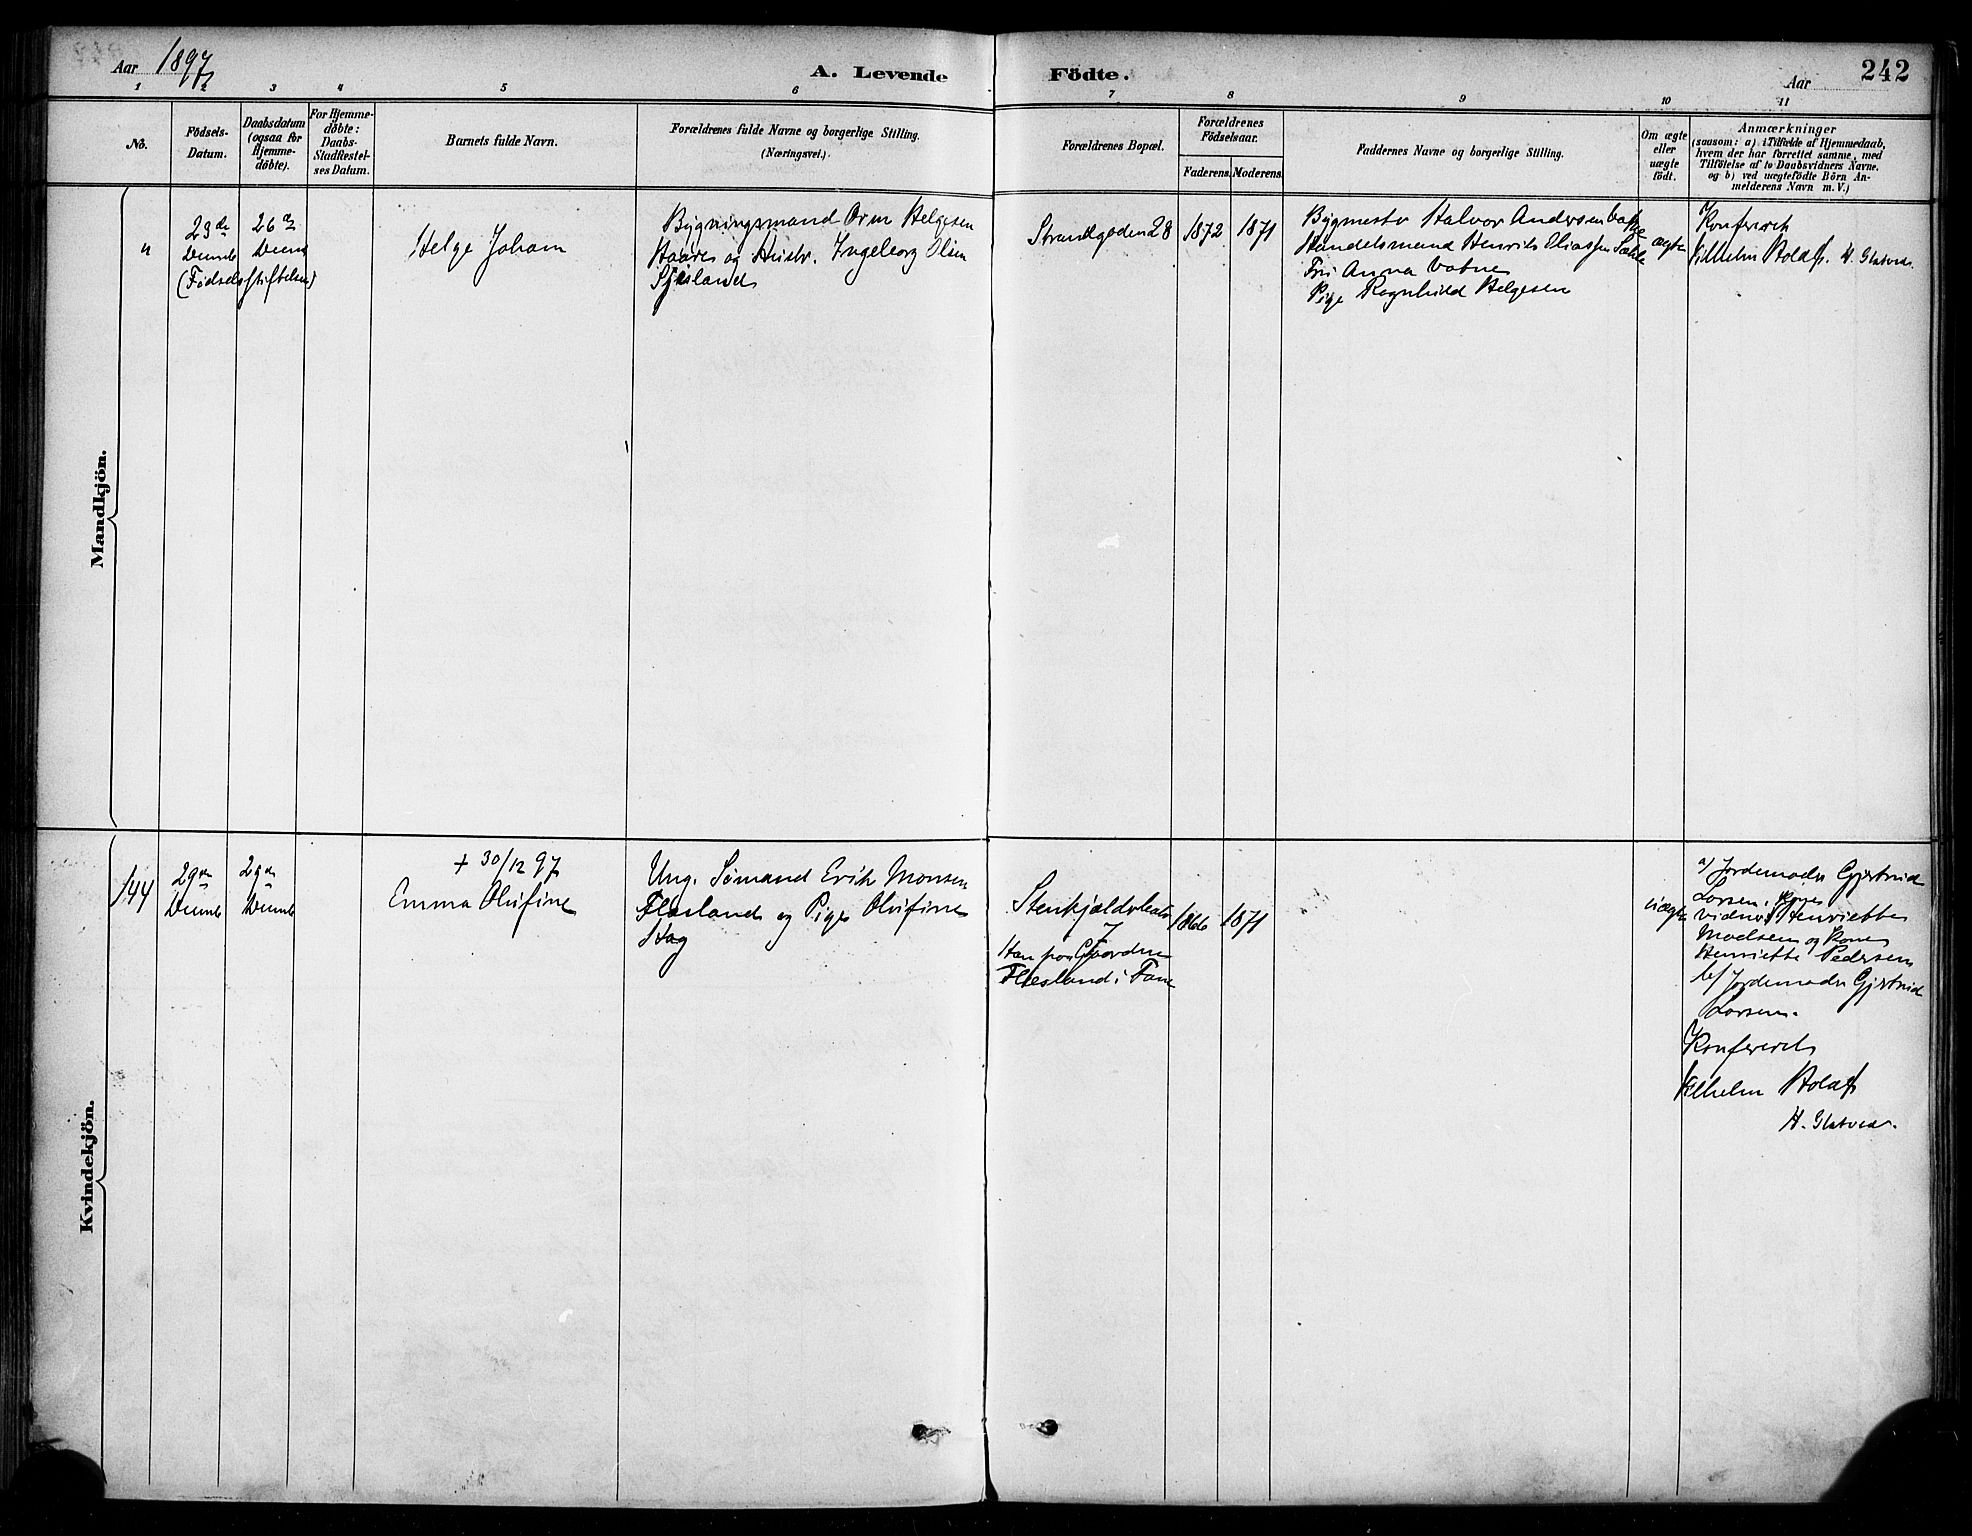 Aar 1897
A. Levende Födte.
Aar
242
1 2 3 4 5 6 7 8 9 10 11
No.
Födsels-
Datum.
Daabsdatum
(ogsaa for
Hjemme-
döbte).
For Hjemme-
döbte:
Daabs-
Stadfæstel-
ses Datum.
Barnets fulde Navn.
Forældrenes fulde Navne og borgerlige Stilling.
(Næringsvei.)
Forældrenes Bopæl.
Forældrenes
Födselsaar.
Faderens. Moderens.
Faddernes Navne og borgerlige Stilling.
Om ægte
eller
uægte
födt.
Anmærkninger
(saasom: a) i Tilfælde af Hjemmedaab,
hvem der har forrettet samme, med
Tilföielse af to Daabsvidners Navne.
og b) ved uægtefödte Börn An-
melderens Navn m. V.)
Mandkjön.
"
23de
Decmb
(Fødselsstiftelsen)
26de
Decmb
Helge Johan
Bygningsmand Orm Helgesen
Haare og Hustr. Ingeborg Olsen
Strandgaden 28
1872
1871
Bygmester Halvor Andersen
Handelsmand Henrik Eliassen
Fru Anna Vatne
Pige Ragnhild Helgesen
ægte
Konfereret
Vilhelm Hold f. H. Slatved.
Kvindekjön.
144
29de
Decmb
29de
Decmb
+ 30/12 97
Emma Olufine
Ung. Sømand Erik Monsen
Flesland og Pige Olufine
7
1866
1871
Han paa Gaarden
Flesland i Fane
uægte
a) Jordemoder Gjertrud
Larsen,
vidner Henriette
Madsen og Kone
Henriette Pedersen
b) Jordemoder Gjertrud
Larsen.
Konfereret
Vilhelm Hold f.
H. Slatved.